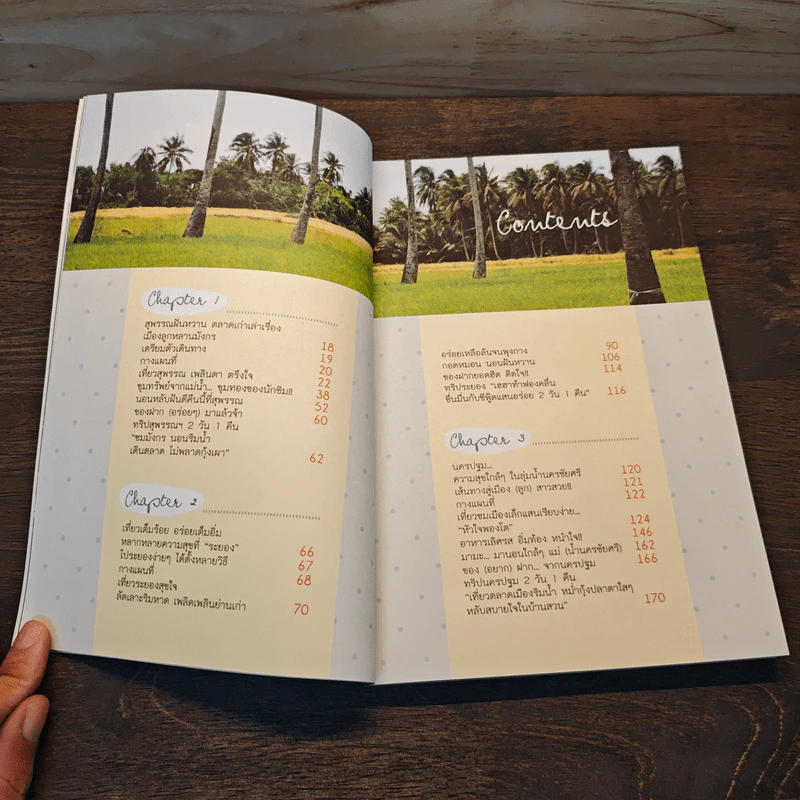 Contents
Chapter 1
สุพรรณฝันหวาน ตลาดเก่าเล่าเรื่อง
เมืองลูกหลานมังกร 18
เตรียมตัวเดินทาง 19
กางแผนที่ 20
เที่ยวสุพรรณ เพลินตา ตรึงใจ 22
ขุมทรัพย์จากแม่น้ำ... ขุมทองของนักชิม!! 38
นอนหลับฝันดีคืนนี้ที่สุพรรณ 52
ของฝาก (อร่อยๆ) มาแล้วจ้า 60
ทริปสุพรรณฯ 2 วัน 1 คืน
"ชมมังกร นอนริมน้ำ
เดินตลาด ไม่พลาดกุ้งเผา" 62
Chapter 2
เที่ยวเต็มร้อย อร่อยเต็มอิ่ม
หลากหลายความสุขที่ "ระยอง" 66
ไประยองง่ายๆ ได้ตั้งหลายวิธี 67
กางแผนที่ 68
เที่ยวระยองสุขใจ
ลัดเลาะริมหาด เพลิดเพลินย่านเก่า 70
อร่อยเหลือล้นจนพุงกาง 90
กอดหมอน นอนฝันหวาน 106
ของฝากยอดฮิต ติดใจ!! 114
ทริประยอง "เฮฮาท้าฟองคลื่น
ชื่นมื่นกับซีฟู้ดแสนอร่อย 2 วัน 1 คืน" 116
Chapter 3
นครปฐม...
ความสุขใกล้ๆ ในลุ่มน้ำนครชัยศรี 120
เส้นทางสู่เมือง (ลูก) สาวสวย!! 121
กางแผนที่ 122
เที่ยวชมเมืองเล็กแสนเรียบง่าย...
"หัวใจพองโต" 124
อาหารเลิศรส อิ่มท้อง หน้าใจ!! 146
มามะ... มานอนใกล้ๆ แม่ (น้ำนครชัยศรี) 162
ของ (อยาก) ฝาก... จากนครปฐม 166
ทริปนครปฐม 2 วัน 1 คืน
"เที่ยวตลาดเมืองริมน้ำ หม่ำกุ้งปลาตาใสๆ
หลับสบายใจในบ้านสวน" 170